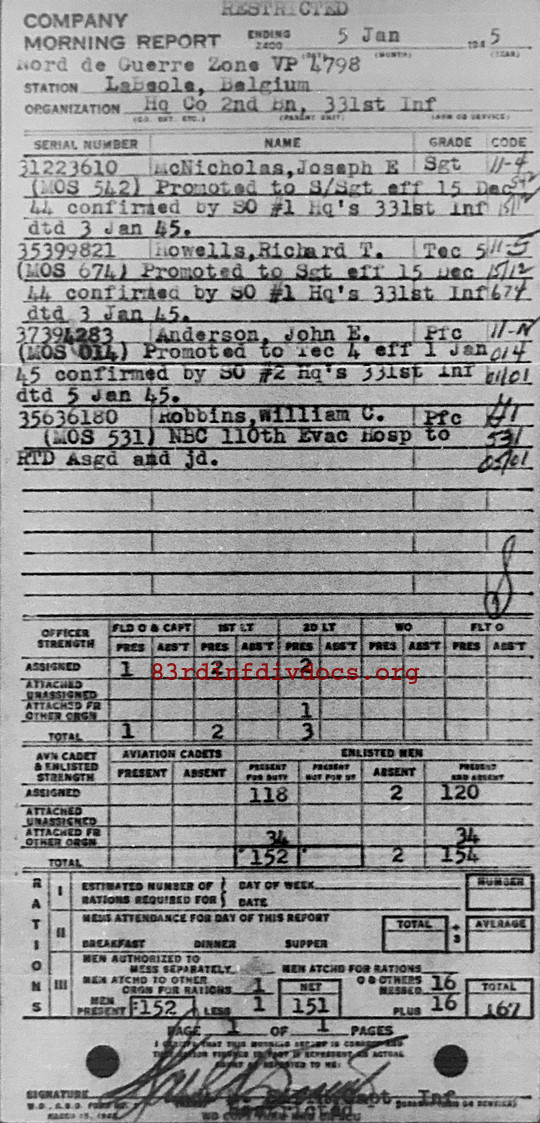 RESTRICTED
COMPANY
MORNING REPORT ENDING 2400 5 Jan 1945
(DAY) (MONTH) (YEAR)
Nord de Guerre Zone VP 4798
STATION LaBeole, Belgium
ORGANIZATION Hq Co 2nd Bn, 331st Inf
(CO. DET. ETC.) (PARENT UNIT) (ARM OR SERVICE)
SERIAL NUMBER NAME GRADE CODE
31223610 McNicholas, Joseph E Sgt 11-4
(MOS 542) Promoted to S/Sgt eff 15 Dec
44 confirmed by SO #1 Hq's 331st Inf 15/12
dtd 3 Jan 45.
35399821 Howells, Richard T. Tec 5 11-5
(MOS 674) Promoted to Sgt eff 15 Dec 15/12
44 confirmed by SO #1 Hq's 331st Inf 674
dtd 3 Jan 45.
37394283 Anderson, John E. Pfc 11-N
(MOS 014) Promoted to Tec 4 eff 1 Jan 014
45 confirmed by SO #2 Hq's 331st Inf 01/01
dtd 5 Jan 45.
35636180 Robbins, William C. Pfc
(MOS 531) NBC 110th Evac Hosp to 531
RTD Asgd and jd. 05/01
OFFICER STRENGTH FLD O & CAPT 1ST LT 2D LT WO FLT O
PRES ABS'T PRES ABS'T PRES ABS'T PRES ABS'T PRES ABS'T
ASSIGNED 1 2 2
83rdinfdivdocs.org
ATTACHED UNASSIGNED
ATTACHED FR OTHER ORGN 1
TOTAL 1 2 3
AVN CADET & ENLISTED STRENGTH AVIATION CADETS ENLISTED MEN
PRESENT ABSENT PRESENT FOR DUTY PRESENT NOT FOR DY ABSENT PRESENT AND ABSENT
ASSIGNED 118 2 120
ATTACHED UNASSIGNED
ATTACHED FR OTHER ORGN 34 34
TOTAL 152 2 154
RATIONS
I ESTIMATED NUMBER OF RATIONS REQUIRED FOR { DAY OF WEEK DATE NUMBER
II MESS ATTENDANCE FOR DAY OF THIS REPORT TOTAL ÷ 3 AVERAGE
BREAKFAST DINNER SUPPER
III MEN AUTHORIZED TO MESS SEPARATELY MEN ATCHD FOR RATIONS
MEN ATCHD TO OTHER ORGN FOR RATIONS 1 NET O & OTHERS MESSED 16 TOTAL
MEN PRESENT 152 LESS 1 151 PLUS 16 167
PAGE 1 OF 1 PAGES
I CERTIFY THAT THIS MORNING REPORT IS CORRECT AND
SIGNATURE Capt. Inf
Restricted